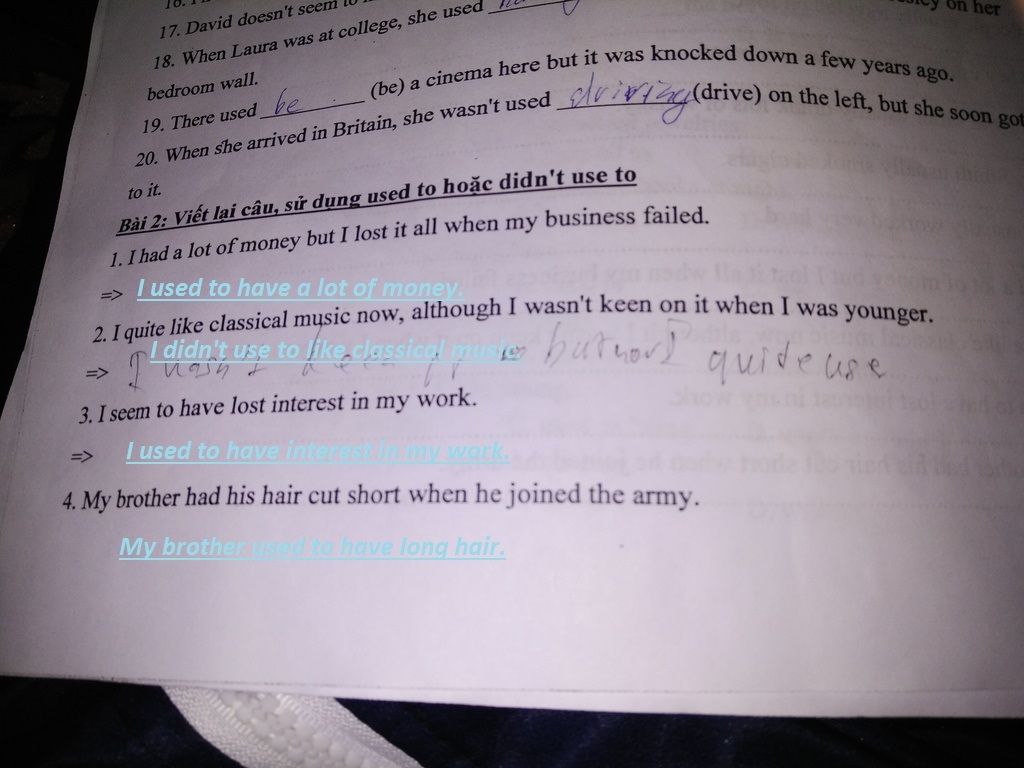 17. David doesn't seem to
18. When Laura was at college, she used
on her
bedroom wall.
19. There used be (be) a cinema here but it was knocked down a few years ago.
20. When she arrived in Britain, she wasn't used driving (drive) on the left, but she soon got
to it.
Bài 2: Viết lại câu, sử dụng used to hoặc didn't use to
1. I had a lot of money but I lost it all when my business failed.
=> I used to have a lot of money.
2. I quite like classical music now, although I wasn't keen on it when I was younger.
I didn't use to like classical music
=> I wasn't keen but now I quite use
3. I seem to have lost interest in my work.
=> I used to have interest in my work.
4. My brother had his hair cut short when he joined the army.
My brother used to have long hair.